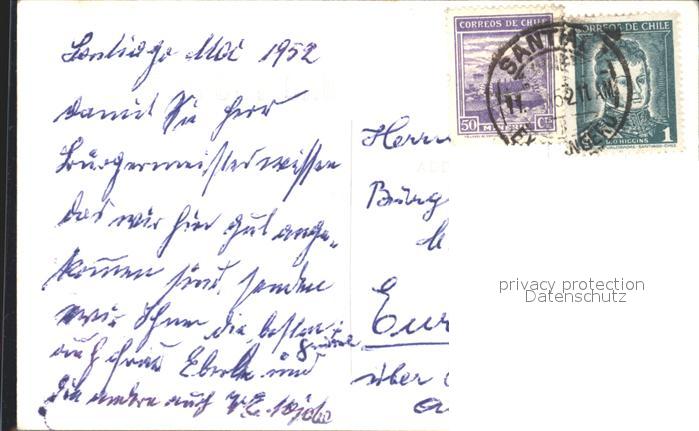 Santiago Mai 1952
damit Sie Herr
Bürgermeister wissen
das wir hier gut ange-
kommen sind, senden
wir Ihnen die besten
Grüsse
auch Frau Eberle und
die andern auch
Herrn
Bürg
Eur
über
CORREOS DE CHILE
50 Cts
CORREOS DE CHILE
B. O'HIGGINS
1
SANTIA
privacy protection
Datenschutz